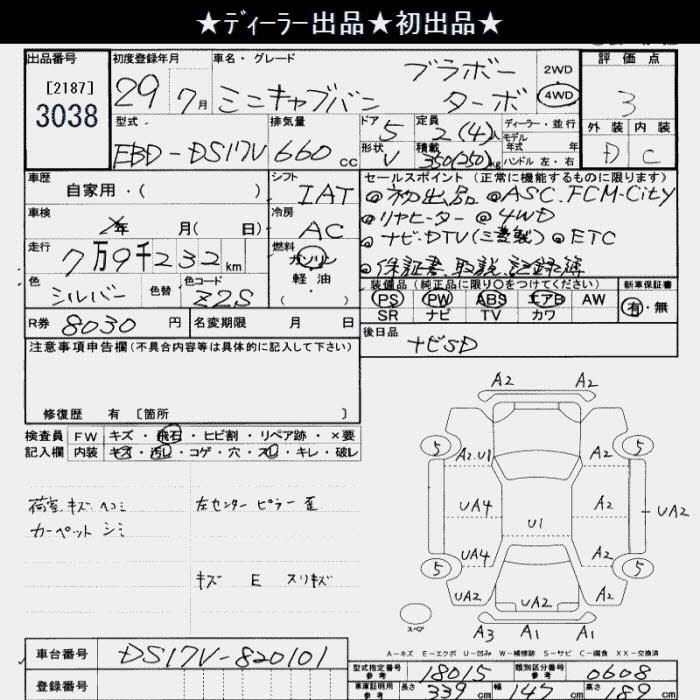 ★ディーラー出品★初出品★
出品番号 初度登録年月 車名・グレード 評価点
[2187]
3038
29 7月 ミニキャブバン ブラボー ターボ
2WD
4WD
3
外装 内装
D C
型式 排気量 ドア 定員 ディーラー・並行
EBD-DS17V 660cc 5 2(4)人 モデル年式 年
形状 積載 ハンドル 左・右
V 350(250)kg
車歴 シフト セールスポイント (正常に機能するものに限ります)
自家用・( ) IAT @初出品 @ASC.FCM-City
車検 冷房 @リヤヒーター @4WD
年 月( 日) AC @ナビ.DTV(三菱製) @ETC
走行 燃料 @保証書.取説.記録簿
7万9千232km ガソリン
軽油
( )
色 色替 色コード
シルバー Z2S
装備品 (純正品に限り○をつけてください) 新車保証書
PS PW ABS エアB AW 有・無
SR ナビ TV カワ
R券 8030 円 名変期限 月 日
後日品
ナビSD
注意事項申告欄(不具合内容等は具体的に記入して下さい)
修復歴 有 〔箇所 〕
検査員 FW キズ・飛石・ヒビ割・リペア跡・×要
記入欄 内装 キズ・汚レ・コゲ・穴・スレ・キレ・破レ
荷室 キズ ヘコミ 左センターピラー 歪
カーペット シミ
キズ E スリキズ
A2 A1
5 5
A2.U1 A2
UA4 A2 UA2
U1
UA4 A2
5 5
UA2 UA2 A2
スペア
A3 A1 A1
A-キズ E-エクボ U-凹み W-補修跡 S-サビ C-腐食 XX-交換済
車台番号 DS17V-820101
型式指定番号 参考 18015 類別区分番号 参考 0608
登録番号
車庫証明用 参考 長さ 339 cm 幅 147 cm 高さ 189 cm